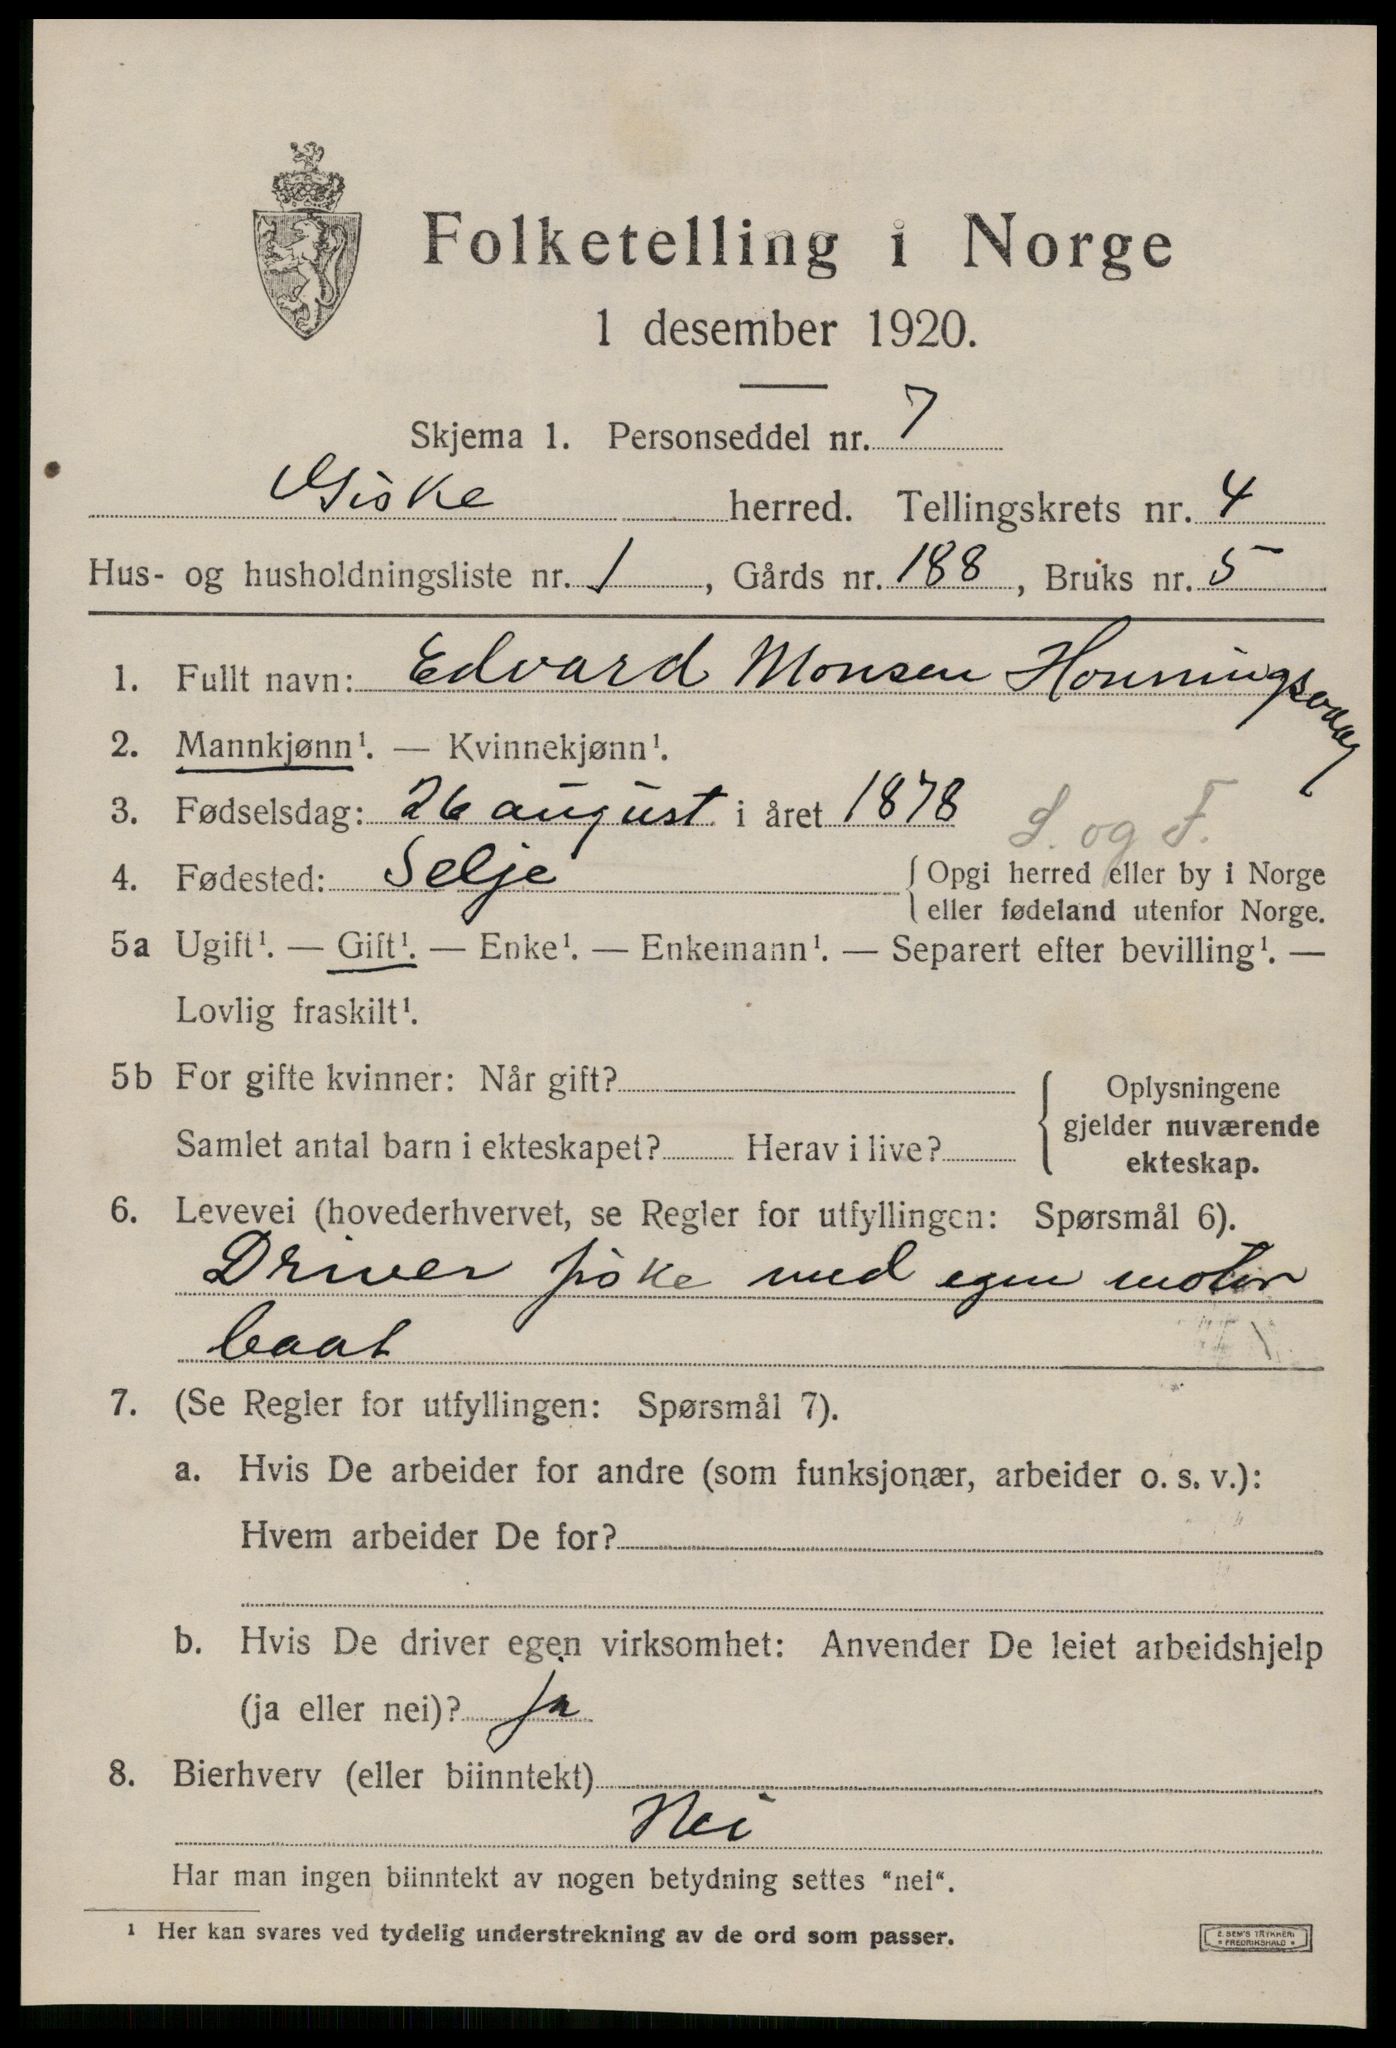 Folketelling i Norge
1 desember 1920.
Skjema 1. Personseddel nr. 7
Giske herred. Tellingskrets nr. 4
Hus- og husholdningsliste nr. 1, Gårds nr. 188, Bruks nr. 5
1. Fullt navn: Edvard Monsen Honningsvaag
2. Mannkjønn¹. — Kvinnekjønn¹.
3. Fødselsdag: 26 august i året 1878
S. og F.
4. Fødested: Selje {Opgi herred eller by i Norge
eller fødeland utenfor Norge.
5a Ugift¹. — Gift¹. — Enke¹. — Enkemann¹. — Separert efter bevilling¹. —
Lovlig fraskilt¹.
5b For gifte kvinner: Når gift?
Samlet antal barn i ekteskapet? Herav i live?
Oplysningene
gjelder nuværende
ekteskap.
6. Levevei (hovederhvervet, se Regler for utfyllingen: Spørsmål 6).
Driver fiske med egen motor
baat
7. (Se Regler for utfyllingen: Spørsmål 7).
a. Hvis De arbeider for andre (som funksjonær, arbeider o. s. v.):
Hvem arbeider De for?
b. Hvis De driver egen virksomhet: Anvender De leiet arbeidshjelp
(ja eller nei)? ja
8. Bierhverv (eller biinntekt)
Nei
Har man ingen biinntekt av nogen betydning settes "nei".
¹ Her kan svares ved tydelig understrekning av de ord som passer.
E. SEM'S TRYKKERI
FREDRIKSHALD